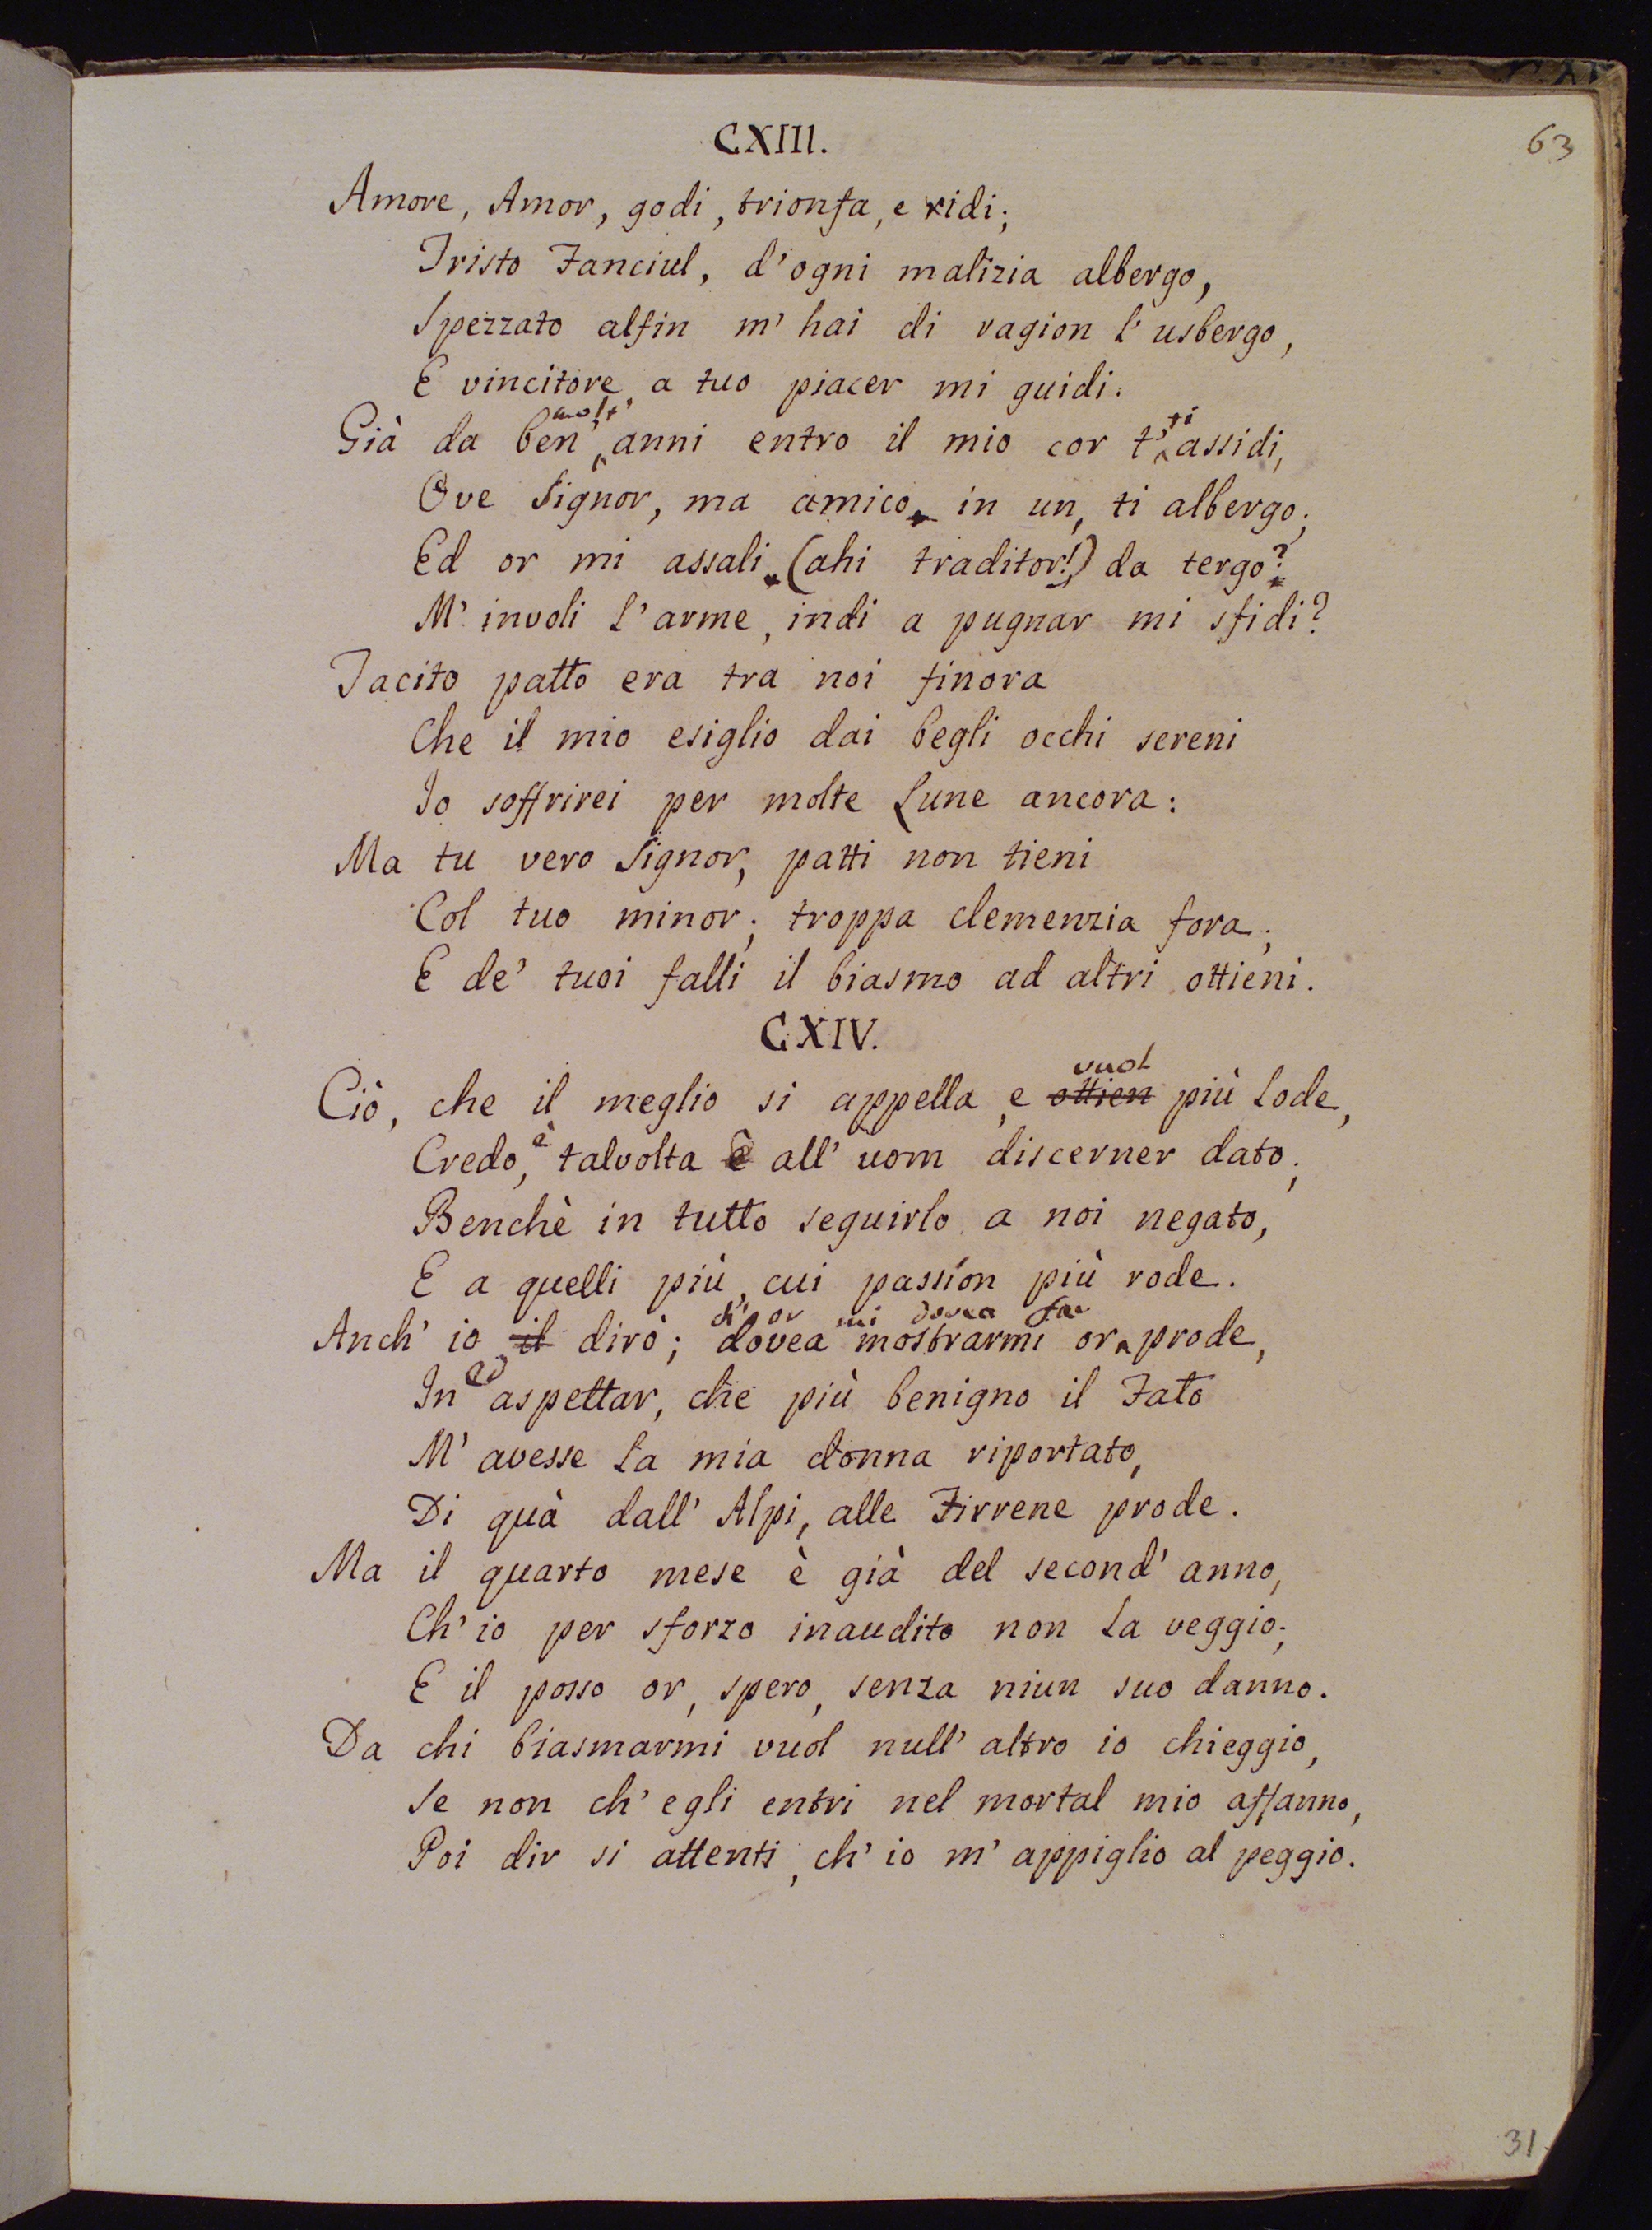 63
CXIII.
Amore, Amor, godi, trionfa, e ridi;
Tristo Fanciul, d'ogni malizia albergo,
Spezzato alfin m'hai di ragion l'usbergo,
E vincitore a tuo piacer mi guidi.
molt'
ti
Già da ben' anni entro il mio cor t' assidi,
Ove Signor, ma amico, in un, ti albergo;
Ed or mi assali, (ahi traditor!) da tergo?
M'involi l'arme, indi a pugnar mi sfidi?
Tacito patto era tra noi finora
Che il mio esiglio dai begli occhi sereni
Io soffrirei per molte Lune ancora:
Ma tu vero Signor, patti non tieni
Col tuo minor; troppa clemenzia fora;
E de' tuoi falli il biasmo ad altri ottieni.
CXIV.
vuol
Ciò, che il meglio si appella, e ottien più lode,
Credo, è talvolta è all'uom discerner dato;
Benchè in tutto seguirlo a noi negato,
E a quelli più, cui passion più rode.
ch' or mi dovea far
Anch' io il dirò; dovea mostrarmi or prode,
In ad aspettar, che più benigno il Fato
M'avesse la mia donna riportato,
Di quà dall'Alpi, alle Tirrene prode.
Ma il quarto mese è già del second'anno,
Ch'io per sforzo inaudito non la veggio;
E il posso or, spero, senza niun suo danno.
Da chi biasmarmi vuol null'altro io chieggio,
Se non ch'egli entri nel mortal mio affanno,
Poi dir si attenti, ch'io m'appiglio al peggio.
31